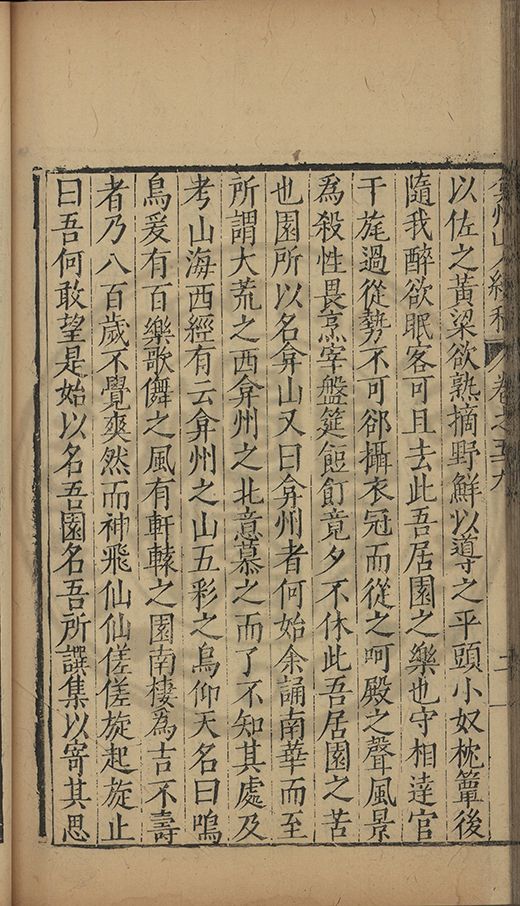 弇州山人續稿 卷之五十九
以佐之黃粱欲熟摘野鮮以導之平頭小奴枕簟後
隨我醉欲眠客可且去此吾居園之樂也守相達官
干旄過從勢不可郤攝衣冠而從之呵殿之聲風景
為殺性畏烹宰盤筵餖飣竟夕不休此吾居園之苦
也園所以名弇山又曰弇州者何始余誦南華而至
所謂大荒之西弇州之北意慕之而了不知其處及
考山海西經有云弇州之山五彩之鳥仰天名曰鳴
鳥爰有百樂歌儛之風有軒轅之園南棲為吉不壽
者乃八百歲不覺爽然而神飛仙仙傞傞旋起旋止
曰吾何敢望是始以名吾園名吾所譔集以寄其思